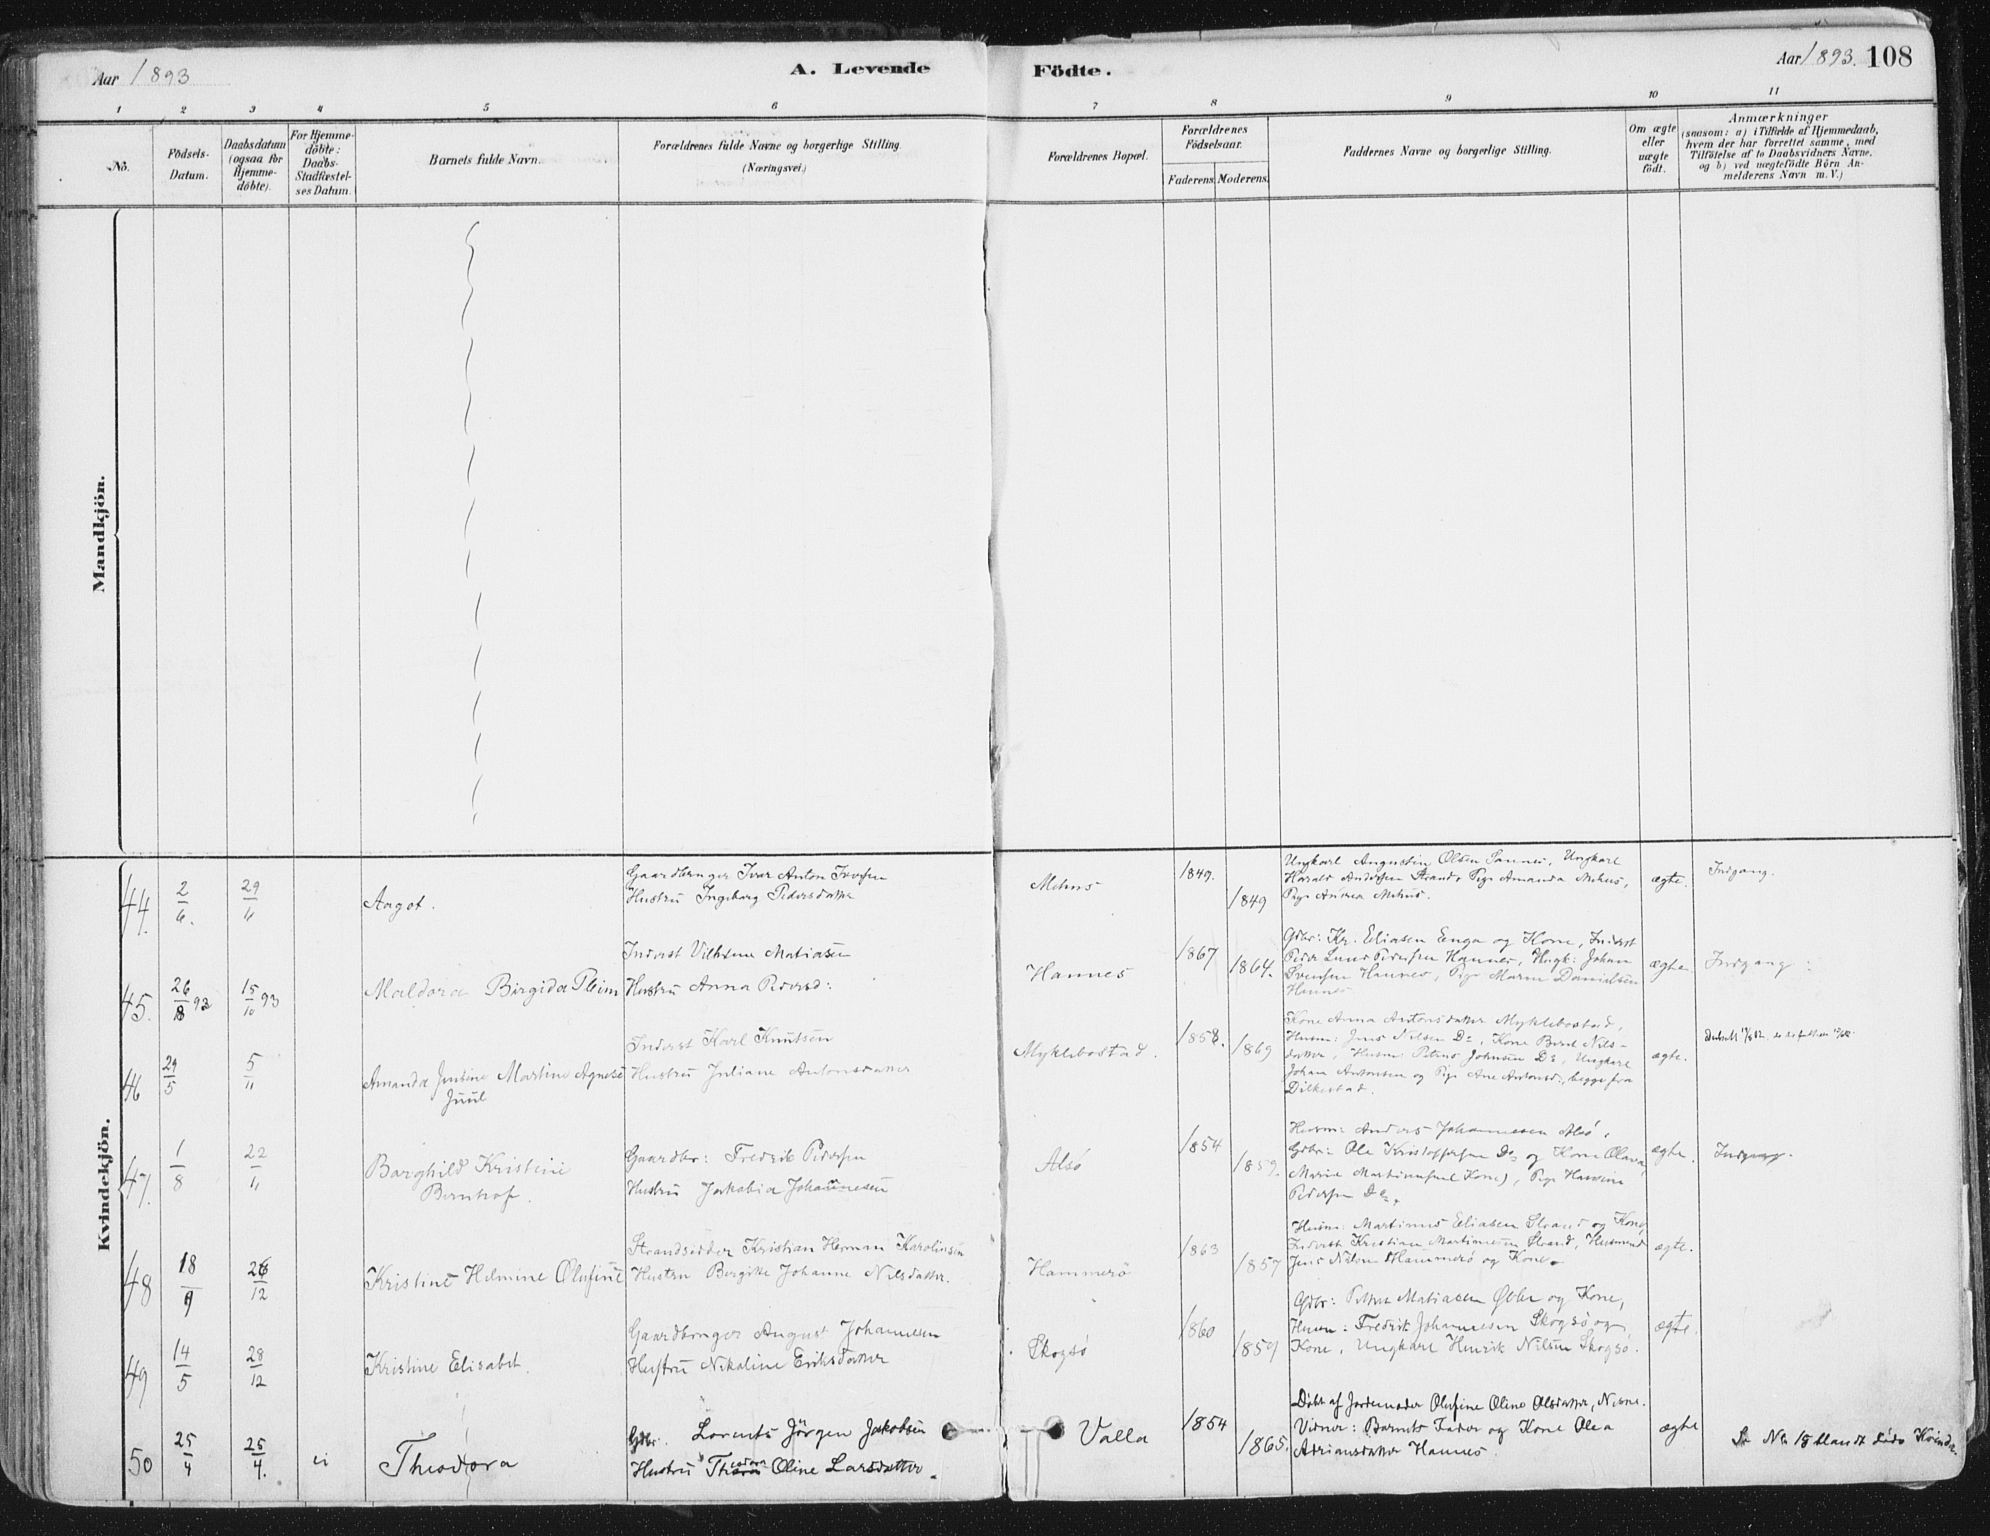 Aar 1893
A. Levende
Födte.
Aar 1893. 108
1 2 3 4 5 6 7 8 9 10 11
No.
Födsels-
Datum.
Daabsdatum
(ogsaa for
Hjemme-
döbte).
For Hjemme-
döbte:
Daabs-
Stadfæstel-
ses Datum.
Barnets fulde Navn.
Forældrenes fulde Navne og borgerlige Stilling.
(Næringsvei.)
Forældrenes Bopæl.
Forældrenes
Födselsaar.
Faderens. Moderens.
Faddernes Navne og borgerlige Stilling.
Om ægte
eller
uægte
födt.
Anmærkninger
(saasom: a) i Tilfælde af Hjemmedaab,
hvem der har forrettet samme, med
Tilföielse af to Daabsvidners Navne,
og b) ved uægtefödte Börn An-
melderens Navn m. V.)
Mandkjön.
Kvindekjön.
44. 2/6. 29/6 Aagot.
Gaardbruger Ivar Anton Iversen
Hustru Ingeborg Pedersdatter
1849. 1849
Ungkarl Augustin Olsen, Ungkarl
Harald Andersen Strand, Pige Amanda Mehus,
Pige Andrea Mehus.
ægte. Indgang.
45. 26/8 93 15/10 93 Maldora Birgida
Inderst Vilhelm Matiasen
Hustru Anna Pedersd:
Hannes 1867 1864.
Gdbr: Kr. Eliasen Enga og Kone, Inderst
Peder Pedersen Hannes, Ungk: Johan
Svensen Hannes, Pige Danielsen
Hannes
ægte Indgang
46 29/5 5/11 Amanda Jensine Martine Agnese
Juul
Inderst Karl Knutsen
Hustru Juliane Antonsdatter
Myklebostad. 1858. 1869
Kone Anna Antonsdatter Myklebostad,
Husm: Jens Nilsen Do, Kone Berit Nils-
datter, Husm: Petter Johnsen Do, Ungkarl
Johan Antonsen og Pige Ane Antonsd:, begge fra
Dilkestad.
ægte.
47. 1/8 22/11 Borghild Kristine
Bernhof.
Gaardbr: Fredrik Pedersen
Hustru Jakobia Johannesen
Alsö 1854 1859.
Husm: Anders Johannesen Alsö,
Gdbr: Ole Kristoffersen Do og Kone Olava,
Marie Kone), Pige
Pedersen Do.
ægte. Indgang.
48 18/9 26/12 Kristine Helmine Olufine
Strandsidder Kristian Herman Karolinsen
Hustru Birgitte Johanne Nilsdatter.
Hammerö 1863 1857
Husm: Martinus Eliasen Strand og Kone,
Inderst Kristian Martinusen Strand, Husmand
Jens Nilsen Hammerö og Kone.
ægte.
49 14/5 28/12 Kristine Elisabet.
Gaardbruger August Johannesen
Hustru Nikoline Eriksdatter
Skogsö 1860 1859
Gdbr: Petter Matiasen og Kone,
Husm: Fredrik Johannesen Skogsö og
Kone, Ungkarl Henrik Nilsen Skogsö.
ægte.
50 25/4 25/4. Theodora
Gdbr. Lorents Jörgen Jakobsen
Hustru Theodora Oline Larsdatter.
Valla 1854 1865.
Döbt af Jordemoder Olufine Oline Olsdatter,
Vidner: Barnets Fader og Kone Olea
Adriansdatter Hannes.
ægte Se No 15 blandt döde Kvinder.